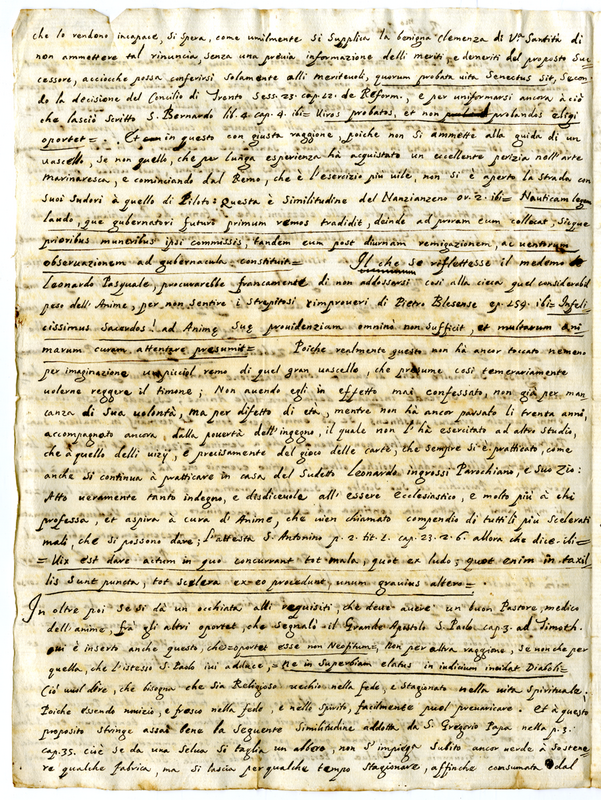 che lo rendono incapace, si spera, come umilmente si supplica la benigna clemenza di V.ra Santità di
non ammettere tal rinuncia, senza una previa informazione delli meriti, e demeriti del proposto suc
cessore, acciocche possa conferirsi solamente alli meriteuoli, quorum probata uita Senectus sit, secon
do la decisione del Concilio di Trento Sess. 23. cap. 12. de Reform., e per uniformarsi ancora à ciò
che lasciò scritto S. Bernardo lib. 4. cap. 4. ibi= Uiros probatos, et non probandos eligi
oportet= . Et in questo con giusta raggione, poiche non si ammette alla guida di un
uascello, se non quello, che per lunga esperienza hà acquistato un eccellente perizia nell'arte
marinaresca, e cominciando dal Remo, che è l'esercizio più uile, non si è aperta la strada con
suoi sudori à quello di Piloto: Questa è similitudine del Nanzianzeno or. 2. ibi= Nauticam legem
laudo, que gubernatori futuro primum remos tradidit, deinde ad proram eum collocat, sicque
prioribus muneribus ipsi commissis, tandem eum post diurnam remigazionem, ac uentorum
obseruazionem ad gubernacula constituit= Il che se riflettesse il medemo
Leonardo Pasquale, procurarebbe francamente di non addossarsi così alla cieca quel considerabil
peso dell'Anime, per non sentire i strepitosi rimproueri di Pietro Blesense ep. 259. ibi= Infeli-
cissimus Sacerdos! ad Animę suę prouidenziam omninò non sufficit, et multarum ani
marum curam attentare presumit= Poiche realmente questo non hà ancor toccato nemeno
per imaginazione un picciol remo di quel gran uascello, che presume così temerariamente
uolerne reggere il timone; Non auendo egli in effetto mai confessato, non già per man
canza di sua uolontà, ma per difetto di età, mentre non hà ancor passato li trenta anni,
accompagnato ancora, dalla pouertà dell'ingegno, il quale non l'hà esercitato ad altro studio,
che à quello delli uizij, e precisamente del gioco delle carte, che sempre si è pratticato, come
anche si continua à pratticare in casa del sudetto Leonardo ingrossi Parochiano, e suo zio:
Atto ueramente tanto indegno, e desdiceuole all'essere ecclesiastico, e molto più à chi
professa, et aspira à cura d'Anime, che uien chiamato compendio di tutti li più scelerati
mali, che si possono dare; L'attesta S. Antonino p. 2. tit. 1. cap. 23. 2. 6. allora che dice. ibi=
= Uix est dare actum in quo concurrant tot mala, quot ex ludo; quot enim in taxil
lis sunt puncta, tot scelera ex eo procedunt, unum grauius altero= .
In oltre poi se si dà un occhiata alli requisiti, che deue auere un buon Pastore, medico
dell'anime, frà gli altri oportet, che segnali il Grande Apostolo S. Paolo cap. 3. ad Timoth.
ui è inserto anche questo, che= oportet esse non Neofitum=, Non per altra raggione, se non che per
quella, che l'istesso S. Paolo iui adduce, = ne in superbiam elatus in iudicium incidat Diaboli=
Ciò uuol dire, che bisogna che sia Religioso uecchio nella fede, e stagionato nella uita spirituale;
Poiche essendo nouizio, e fresco nella fede, e nello spirito, facilmente puol preuaricare. Et à questo
proposito stringe assai bene la seguente similitudine addotta da S. Gregorio Papa nella p. 3.
cap. 35. cioè se da una selua si taglia un albero, non s'impiega subito ancor uerde à sostene
re qualche fabrica, ma si lascia per qualche tempo stagionare, affinche consumata dal